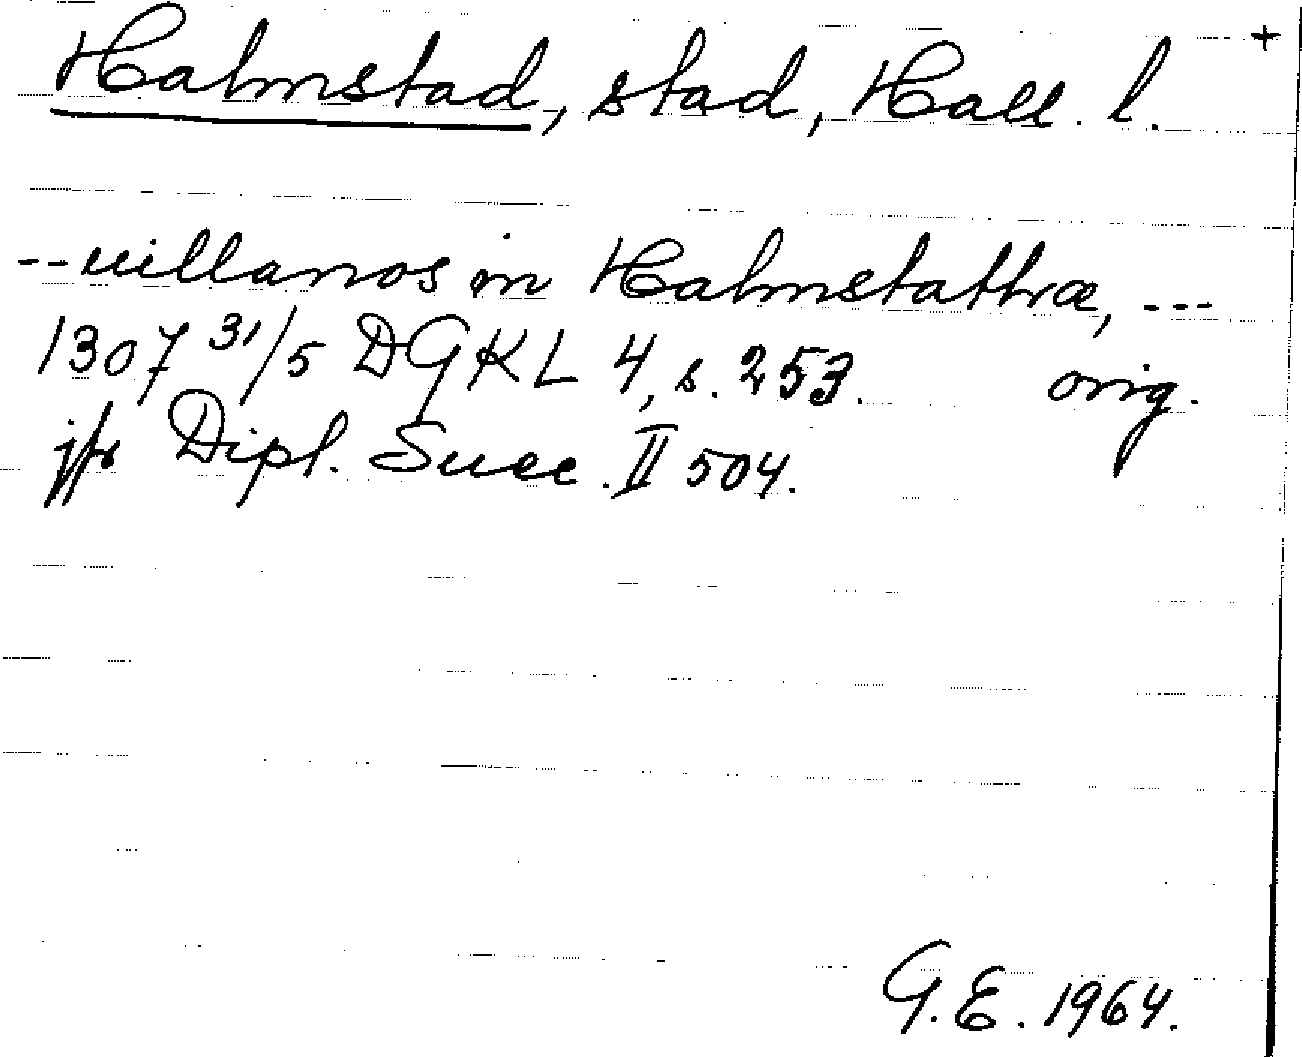 Halmstad, stad, Hall. l. +
-- uillanos in Halmstathræ, ---
1307 31/5 DGKL 4, s. 253. orig.
jfr Dipl. Suec. II 504.
G.E. 1964.